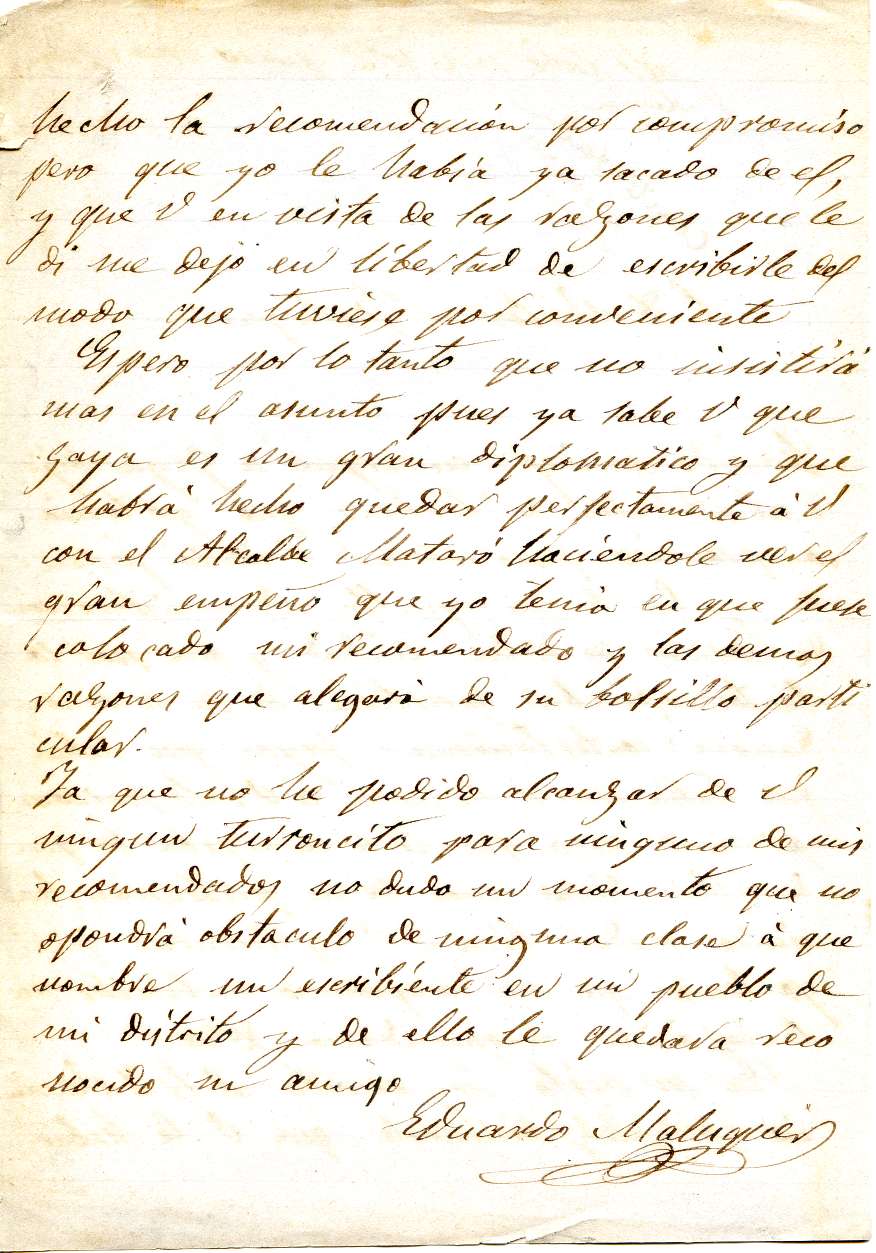 hecho la recomendación por compromiso
pero que yo le había ya sacado de el,
y que V en vista de las razones que le
di me dejó en libertad de escribirle del
modo que tuviese por conveniente
Espero por lo tanto que no insistirá
mas en el asunto pues ya sabe V que
Zaya es un gran diplomatico y que
habrá hecho quedar perfectamente á V
con el Alcalde Mataró haciendole ver el
gran empeño que yo tenia en que fuese
colocado mi recomendado y las demas
razones que alegará de su bolsillo parti
cular.
Ya que no he podido alcanzar de V
ningun turroncito para ninguno de mis
recomendados no dudo un momento que no
opondrá obstaculo de ninguna clase á que
nombre un escribiente en un pueblo de
mi distrito y de ello le quedara reco
nocido su amigo
Eduardo Maluquer